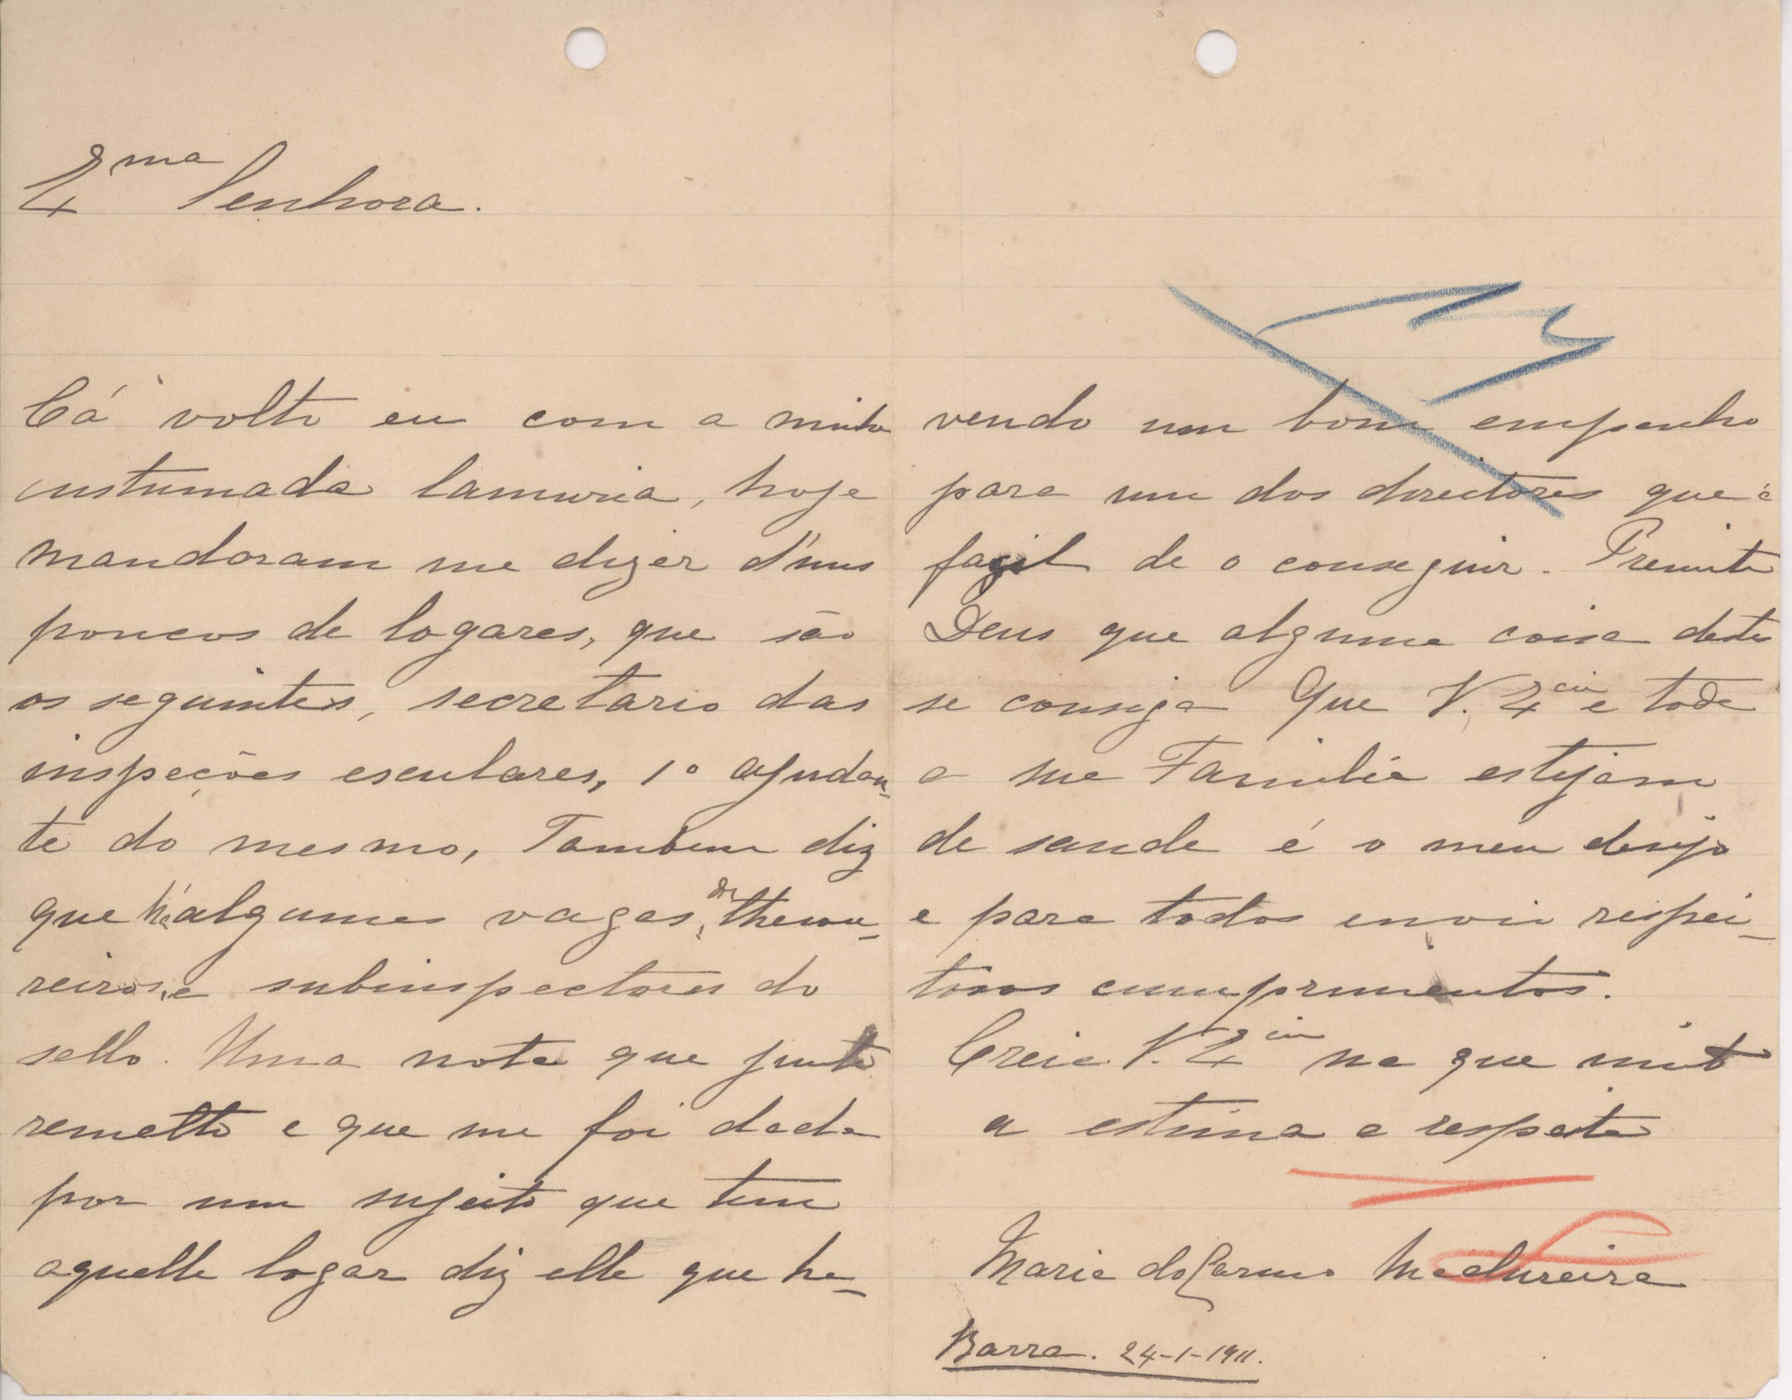 Exma Senhora.
Cá volto eu com a minha
custumada lamuria, hoje
mandoram me dizer d'uns
poucos de logares, que são
os seguintes, secretario das
inspeções esculares, 1º ajudan-
te do mesmo, Tambem diz
que há algumas vagas, de thesou-
reiros, e subinspectores do
sello. Uma nota que junto
remetto e que me foi dada
por um sujeito que tem
aquelle logar diz elle que ha-
vendo um bom empenho
para um dos directores que é
façil de o conseguir. Premita
Deus que alguma coisa deste
se consiga Que V. Excia e toda
a sua Familia estejam
de saude é o meu desejo
e para todos envio respei-
tosos cumprimentos.
Creia V. Excia na que muito
a estima e respeita
Maria do Carmo Madureira
Barra. 24-1-1911.